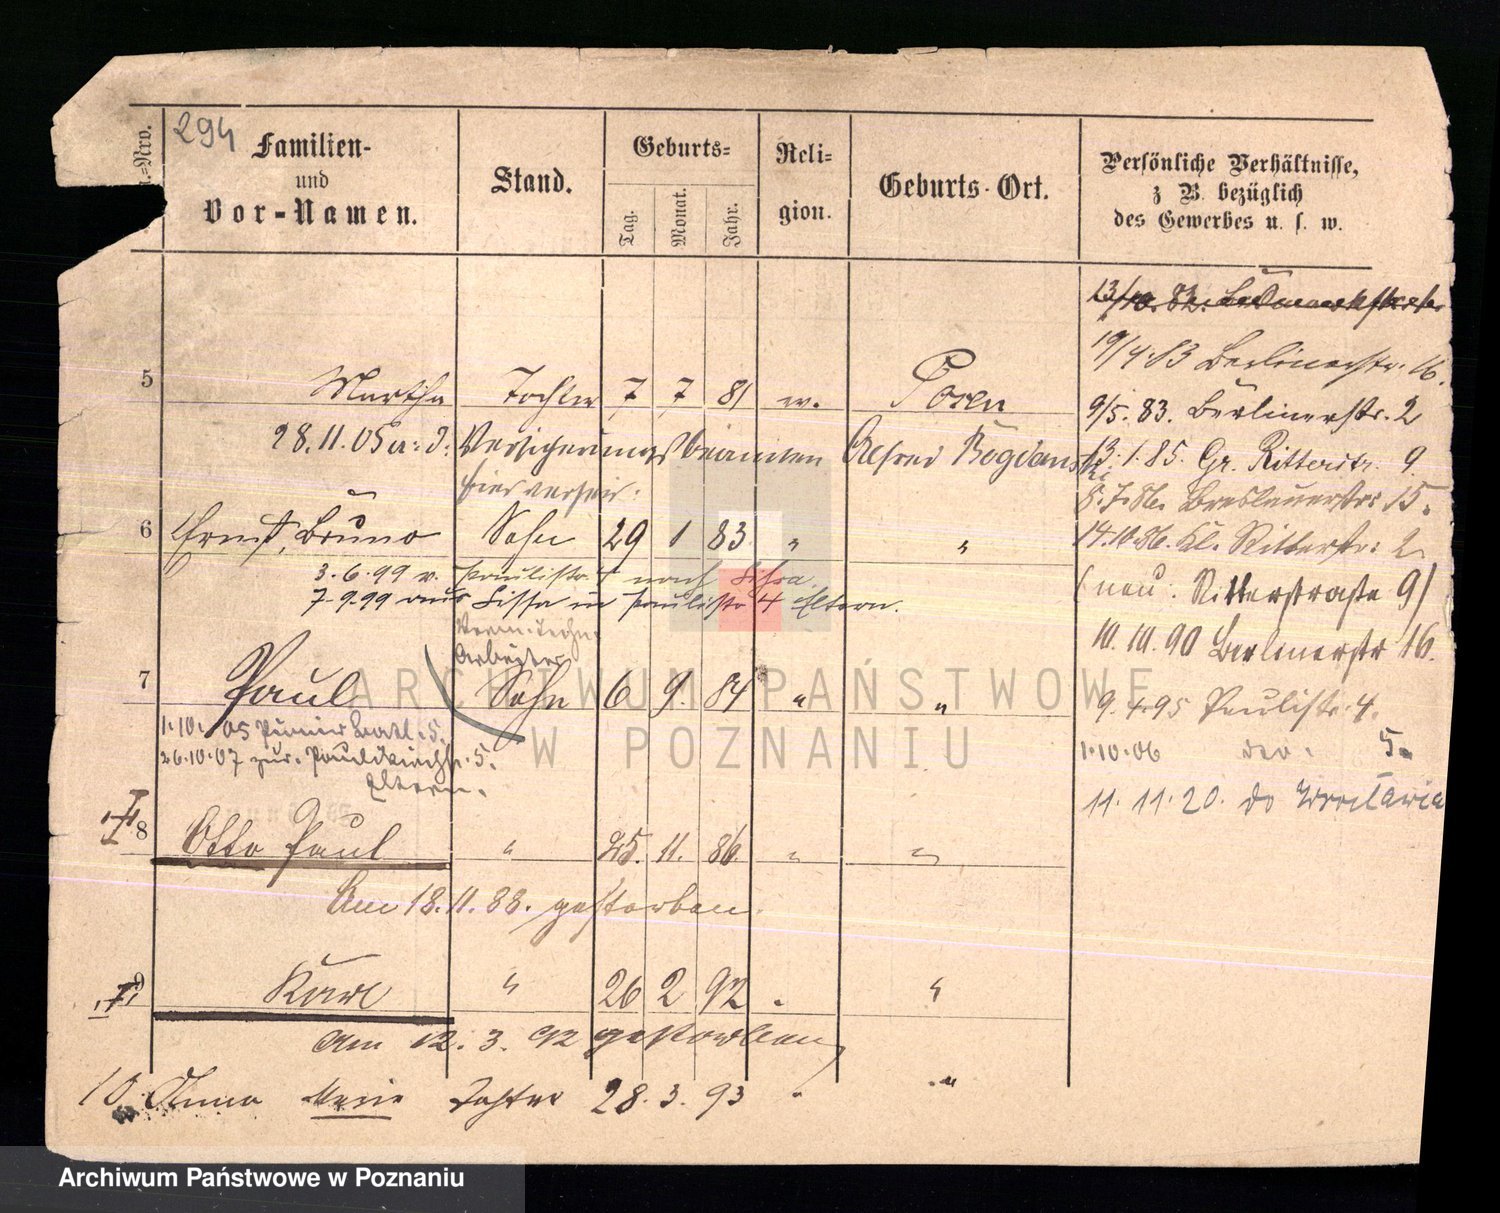 294
Nro.
Familien-
und
Vor-Namen.
Stand.
Geburts-
Tag.
Monat.
Jahr.
Reli-
gion.
Geburts-Ort.
Persönliche Verhältnisse,
z B. bezüglich
des Gewerbes u. s. w.
13/10. 82.
19/4. 83 Berlinerstr. 16.
5 Martha Tochter 7 7 81 ev. Posen
9/5. 83. Berlinerstr. 2
28.11.05 Versicherungsbeamten Alfred Bogdanski
hier verheir.
13.1.85. Gr. Ritterstr. 9.
8.7.86. Breslauerstr 15.
6 Ernst, Bruno Sohn 29 1 83 " "
14.10.86. Kl. Ritterstr. 2
3.6.99 v. Paulistr. 4 nach Lissa.
(neu: Ritterstraße 9)
7.9.99 aus Lissa in Paulistr 4 Eltern.
10.10.90 Berlinerstr 16.
Arbeiter
7 Paul Sohn 6 9. 84 " "
9.4.95 Paulistr. 4.
1.10.05 Pionier Batl. 5.
1.10.06 5.
26.10.07 zur. Paulikirchstr. 5.
Eltern.
11.11.20. do
8 Otto Paul " 25. 11. 86. " "
Am 18.11.88. gestorben.
9 Karl " 26 2 92 " "
Am 12.3.92 gestorben
10 Anna Tochter 28.3.93 " "
ARCHIWUM PAŃSTWOWE
W POZNANIU
Archiwum Państwowe w Poznaniu